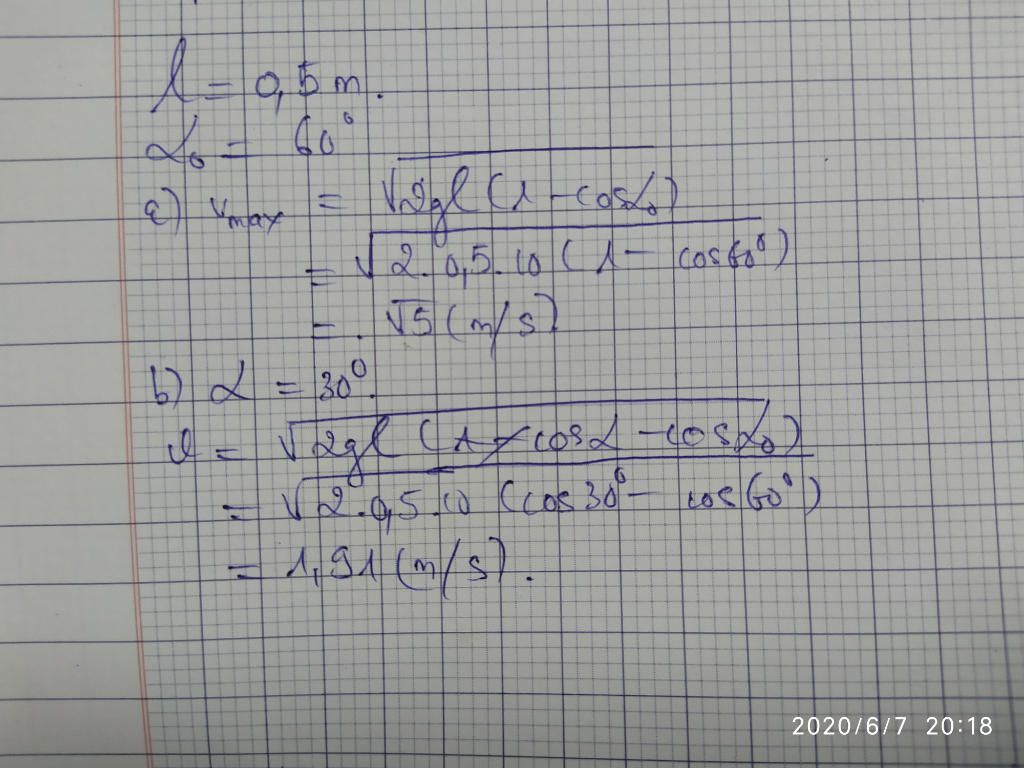 l = 0,5 m.
α₀ = 60°
a) vmax = √2gl(1 - cosα₀)
= √2.0,5.10(1 - cos60°)
= √5 (m/s)
b) α = 30°.
v = √2gl(1 - cosα - cosα₀)
= √2.0,5.10 (cos30° - cos60°)
= 1,91 (m/s).
2020/6/7 20:18